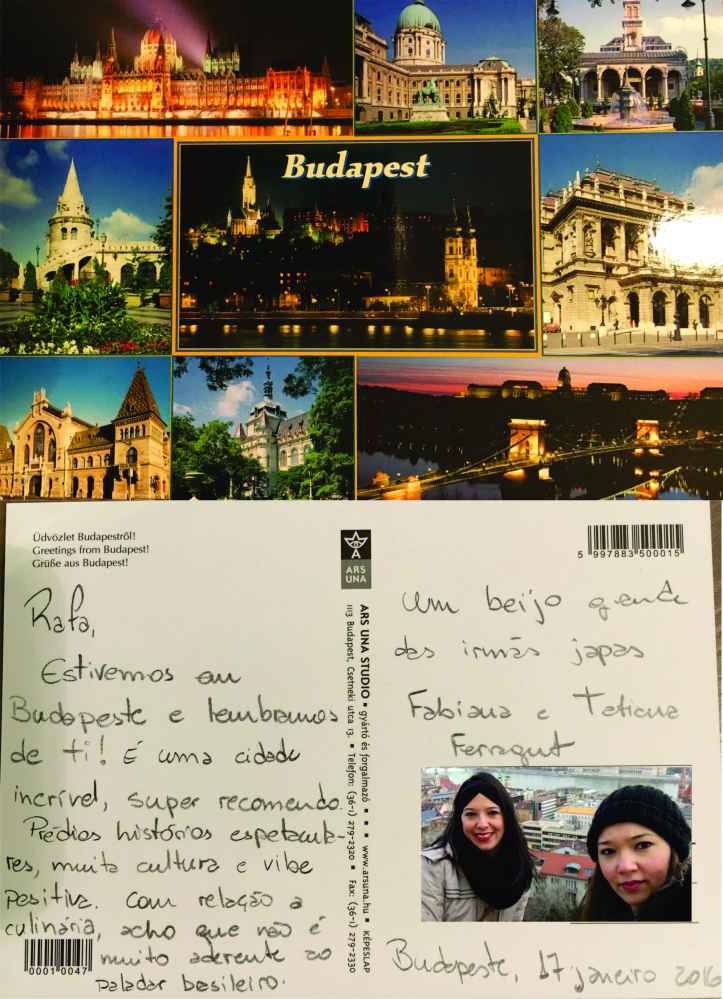 Budapest
Üdvözlet Budapestről!
Greetings from Budapest!
Grüße aus Budapest!
Rafa,
Estivemos em
Budapeste e lembramos
de ti! É uma cidade
incrível, super recomendo.
Prédios histórios espetacula-
res, muita cultura e vibe
positiva. Com relação a
culinária, acho que não é
muito aderente ao
paladar basileiro.
00010047
ARS
UNA
ARS UNA STUDIO • gyártó és forgalmazó • • • www.arsuna.hu • KÉPESLAP
1113 Budapest, Csetneki utca 13. • Telefon: (36-1) 279-2320 • Fax: (36-1) 279-2330
5 997883 500015
Um beijo grande
das irmãs japas
Fabiana e Tatiana
Ferragut
Budapeste, 17 janeiro 2016